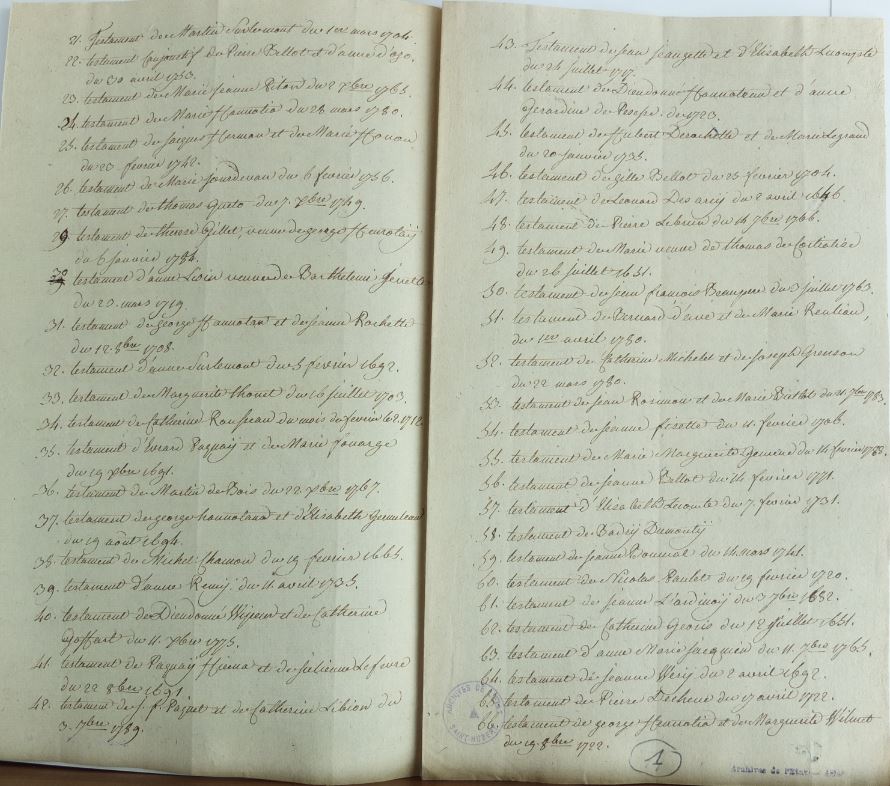 21. Testament de Martin Surlemont du 1er mars 1704.
22. testament conjonctif de Pierre Bellot et d'anne d'ogo,
du 30 avril 1753.
23. testament de Marie jeanne Piton du 2 xbre 1765.
24. testament de Marie Hannotia du 28 mars 1780.
25. testament de jacques Herman et de Marie
du 20 fevrier 1742.
26. testament de Marie jourdevan du 6 fevrier 1756.
27. testament de thomas du 7. xbre 1749.
29. testament de therese Gillet, veuve de george
du 6 janvier 1784.
30 testament d'anne veuve de Barthelemi
du 23. mars 1719.
31. testament de george Hannotia et de jeanne Rochette
du 12. 8bre 1708.
32. testament d'anne Surlemont du 5 fevrier 1692.
33. testament de Marguerite thonet du 16 juillet 1703.
34. testament de Catherine Rousseau du mois de fevrier 1712
35. testament d'Evrard Paquay et de Marie fouarge
du 19 xbre 1691.
36. testament de Martin de Bois du 22 xbre 1767.
37. testament de george hannotand et d'Elisabeth
du 19 août 1694.
38. testament de Michel Chamon du 19 fevrier 1665.
39. testament d'anne Remij. du 11 avril 1735.
40. testament de Dieudonné et de Catherine
goffart du 11 xbre 1775.
41. testament de Paquay et de julienne Lefevre
du 22 8bre 1691
42. testament de j. f. Paquet et de Catherine Libion du
3. 7bre 1789.
43. Testament de jean jeangette et d'Elisabeth Lecomte
du 24 juillet 1717.
44. testament de Dieudonné Hannoteau et d'anne
Gerardine de Pesche. de 1723.
45. testament de Hubert Derochette et de Marie Legrand
du 20 janvier 1735.
46. testament de gille Bellot du 25 fevrier 1704.
47. testament de Leonard Des arcij du 2 avril 1646.
48. testament de Pierre Lebrun du 16 7bre 1766.
49. testament de Marie veuve de thomas de
du 26 juillet 1651.
50. testament de jean françois Beaupère du 3 juillet 1763.
51. testament de Bernard d'ave et de Marie
du 1er avril 1780.
52. testament de Catherine Michelet et de joseph Grenson
du 22 mars 1780.
53. testament de jean Rosmon et de Marie du 11. 7bre 1783.
54. testament de jeanne fizette du 11. fevrier 1706.
55. testament de Marie Marguerite du 14 fevrier 1783.
56. testament de jeanne Bellot du 24 fevrier 1771.
57. testament d'Elisabeth Lecomte du 7. fevrier 1731.
58. testament de Badry Dumontij
59. testament de jeanne du 14. mars 1741.
60. testament de Nicolas Paulet du 19 fevrier 1720.
61. testament de jeanne L'ardinoij du 3 7bre 1682.
62. testament de Catherine Georis du 12 juillet 1651.
63. testament d'anne Marie jacquien du 11. 7bre 1765.
64. testament de jeanne Werij du 2 avril 1692.
65. testament de Pierre Dechene du 17 avril 1722.
66. testament de george Hennotia et de Marguerite Wilmet
du 19. 8bre 1722.
ARCHIVES DE L'ETAT
SAINT-HUBERT
1
Archives de l'Etat